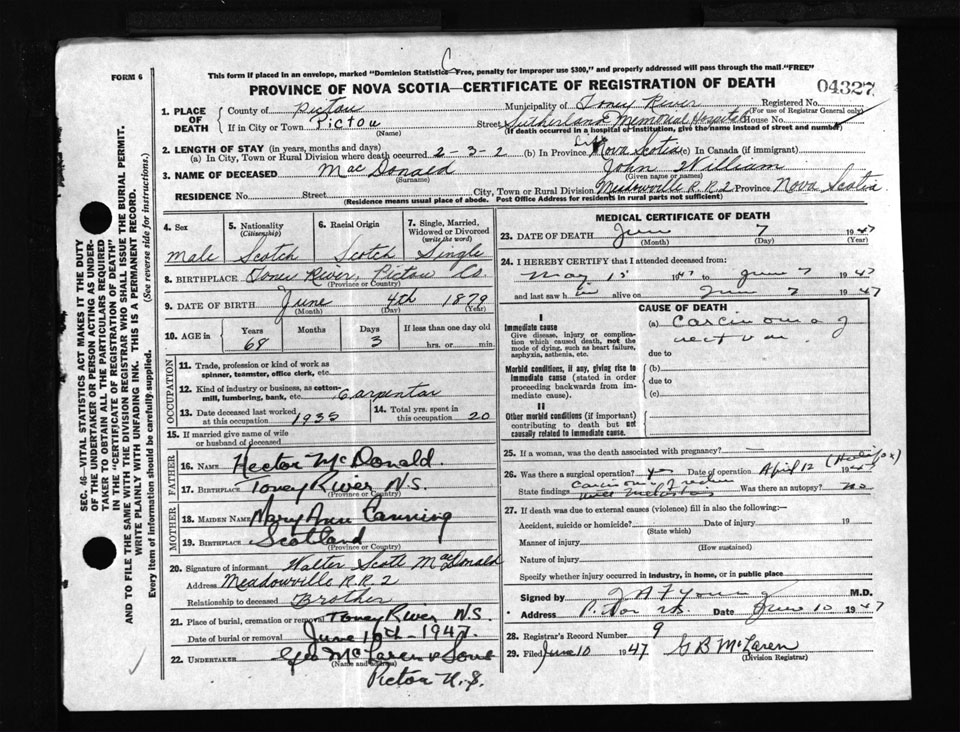 FORM 6
This form if placed in an envelope, marked "Dominion Statistics C Free, penalty for improper use $300," and properly addressed will pass through the mail "FREE"
PROVINCE OF NOVA SCOTIA—CERTIFICATE OF REGISTRATION OF DEATH
04327
1. PLACE OF DEATH
County of Pictou Municipality of Toney River Registered No.
(For use of Registrar General only)
If in City or Town Pictou Street Sutherland Memorial Hospital House No.
(Name) (If death occurred in a hospital or institution, give the name instead of street and number)
2. LENGTH OF STAY (in years, months and days)
(a) In City, Town or Rural Division where death occurred 2-3-2 (b) In Province Life Nova Scotia (c) In Canada (if immigrant)
3. NAME OF DECEASED MacDonald John William
(Surname) (Given name or names)
RESIDENCE No. Street City, Town or Rural Division Meadowville R.R.2 Province Nova Scotia
(Residence means usual place of abode. Post Office Address for residents in rural parts not sufficient)
4. Sex Male
5. Nationality (Citizenship) Scotch
6. Racial Origin Scotch
7. Single, Married, Widowed or Divorced (write the word) Single
8. BIRTHPLACE Toney River, Pictou Co.
(Province or Country)
9. DATE OF BIRTH June 4th 1879
(Month) (Day) (Year)
10. AGE in Years 68 Months Days 3 If less than one day old hrs. or min.
OCCUPATION
11. Trade, profession or kind of work as spinner, teamster, office clerk, etc.
12. Kind of industry or business, as cotton-mill, lumbering, bank, etc. Carpentar
13. Date deceased last worked at this occupation 1935
14. Total yrs. spent in this occupation 20
15. If married give name of wife or husband of deceased
FATHER
16. NAME Hector McDonald.
17. BIRTHPLACE Toney River N.S.
(Province or Country)
MOTHER
18. MAIDEN NAME Mary Ann Canning
19. BIRTHPLACE Scotland
(Province or Country)
20. Signature of informant Walter Scott MacDonald
Address Meadowville R.R.2
Relationship to deceased Brother
21. Place of burial, cremation or removal Toney River N.S.
Date of burial or removal June 10th - 1947.
22. UNDERTAKER Geo McLaren & Sons
(Name and address)
Pictou N.S.
MEDICAL CERTIFICATE OF DEATH
23. DATE OF DEATH June 7 1947
(Month) (Day) (Year)
24. I HEREBY CERTIFY that I attended deceased from:
May 15 1947 to June 7 1947
and last saw him alive on June 7 1947
CAUSE OF DEATH
I
Immediate cause
Give disease, injury or complication which caused death, not the mode of dying, such as heart failure, asphyxia, asthenia, etc.
(a) Carcinoma of
rectum
due to
Morbid conditions, if any, giving rise to immediate cause (stated in order proceeding backwards from immediate cause).
(b)
due to
(c)
II
Other morbid conditions (if important) contributing to death but not causally related to immediate cause.
25. If a woman, was the death associated with pregnancy?
26. Was there a surgical operation? yes Date of operation April 12 1947 (Halifax)
State findings Carcinoma of rectum
with metastas Was there an autopsy? no
27. If death was due to external causes (violence) fill in also the following:—
Accident, suicide or homicide? Date of injury 19
(State which)
Manner of injury
(How sustained)
Nature of injury
Specify whether injury occurred in industry, in home, or in public place
Signed by Young M.D.
Address Date June 10 1947
28. Registrar's Record Number 9
29. Filed June 10 1947 G B McLaren
(Division Registrar)
SEC. 46—VITAL STATISTICS ACT MAKES IT THE DUTY
OF THE UNDERTAKER OR PERSON ACTING AS UNDERTAKER TO OBTAIN ALL THE PARTICULARS REQUIRED
IN THE "CERTIFICATE OF REGISTRATION OF DEATH"
AND TO FILE THE SAME WITH THE DIVISION REGISTRAR WHO SHALL ISSUE THE BURIAL PERMIT.
WRITE PLAINLY WITH UNFADING INK. THIS IS A PERMANENT RECORD.
Every item of information should be carefully supplied. (See reverse side for instructions.)